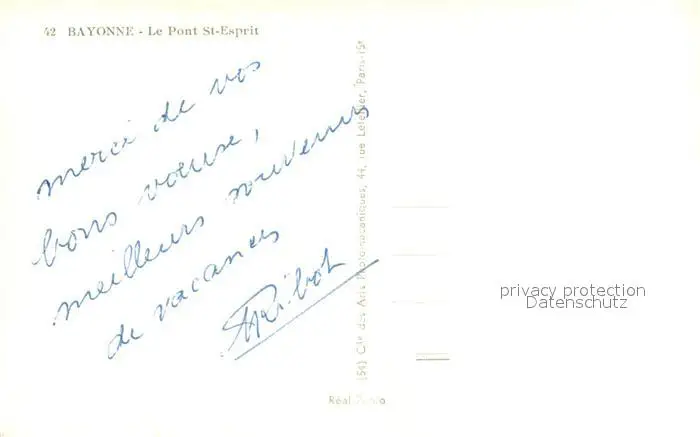 42 BAYONNE - Le Pont St-Esprit
merci de vos
bons voeuse,
meilleurs souvenirs
de vacances
Ribot
(54) Cie des Arts Photomécaniques, 44, rue Letellier, Paris-15e
privacy protection
Datenschutz
Réal-Photo